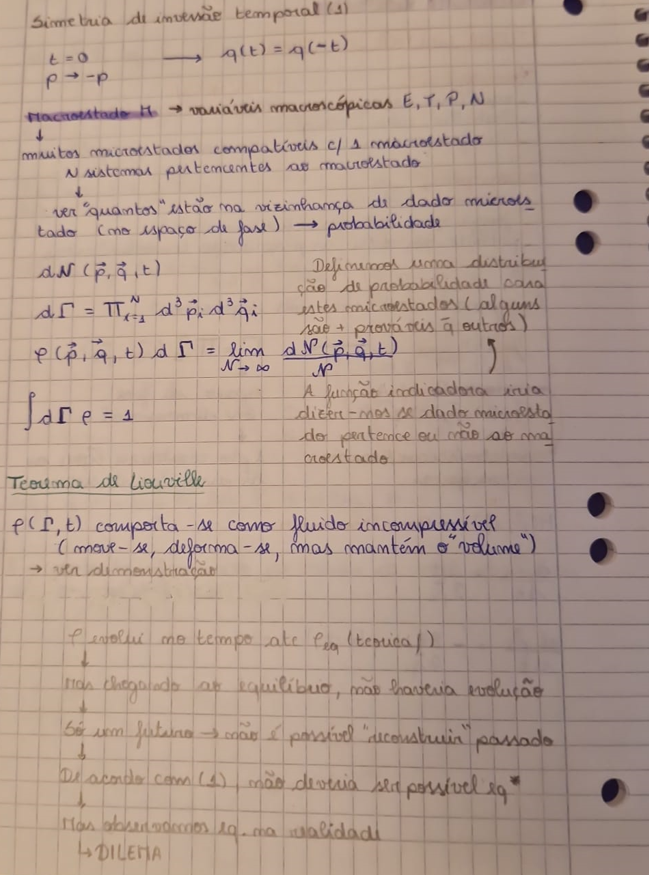 Simetria de inversão temporal (1)
t = 0
p → -p
→ q(t) = q(-t)
Macroestado M → variáveis macroscópicas E, T, P, N
↓
muitos microestados compatíveis c/ 1 macroestado
N sistemas pertencentes ao macroestado
↓
ver "quantos" estão na vizinhança de dado microes
tado (no espaço de fase) → probabilidade
dN (p⃗, q⃗, t)
dΓ = Π_{i=1}^{N} d³p⃗i d³q⃗i
ρ(p⃗, q⃗, t) dΓ = lim_{N→∞} dN(p⃗, q⃗, t) / N
∫dΓ ρ = 1
Definimos uma distribui
ção de probabilidade para
estes microestados (alguns
são + prováveis q̄ outros)
A função indicadora iria
dizer-nos se dado microesta
do pertence ou não ao ma
croestado
Teorema de Liouville
ρ(Γ, t) comporta-se como fluido incompressível
(move-se, deforma-se, mas mantém o "volume")
→ ver demonstração
ρ evolui no tempo até ρeq (teorica/)
↓
Mas chegando ao equilíbrio, não haveria evolução
↓
Só um futuro → não é possível "reconstruir" passado
↓
De acordo com (1), não deveria ser possível eq*
↓
Mas observamos eq. na realidade
↳ DILEMA